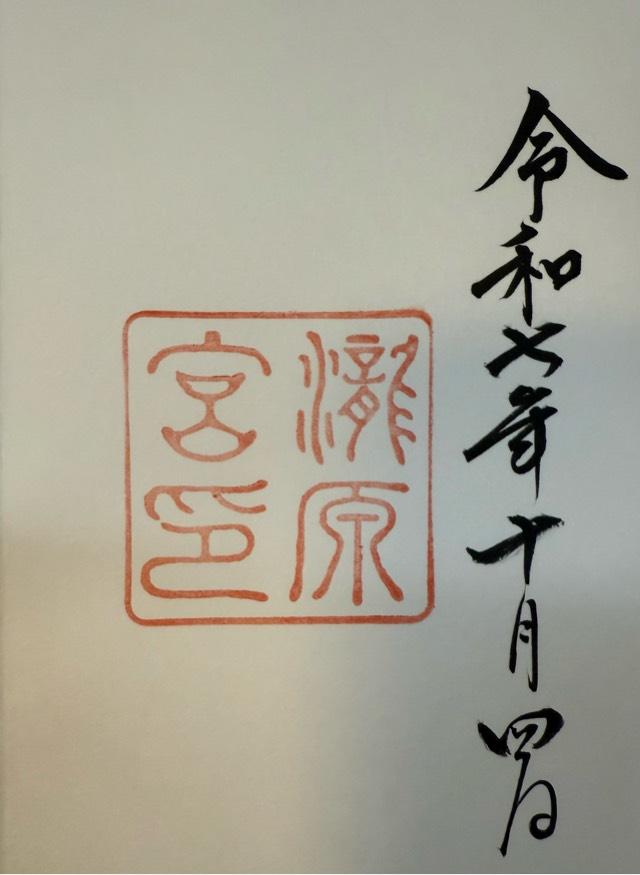 令和七年十月四日
瀧原
宮印